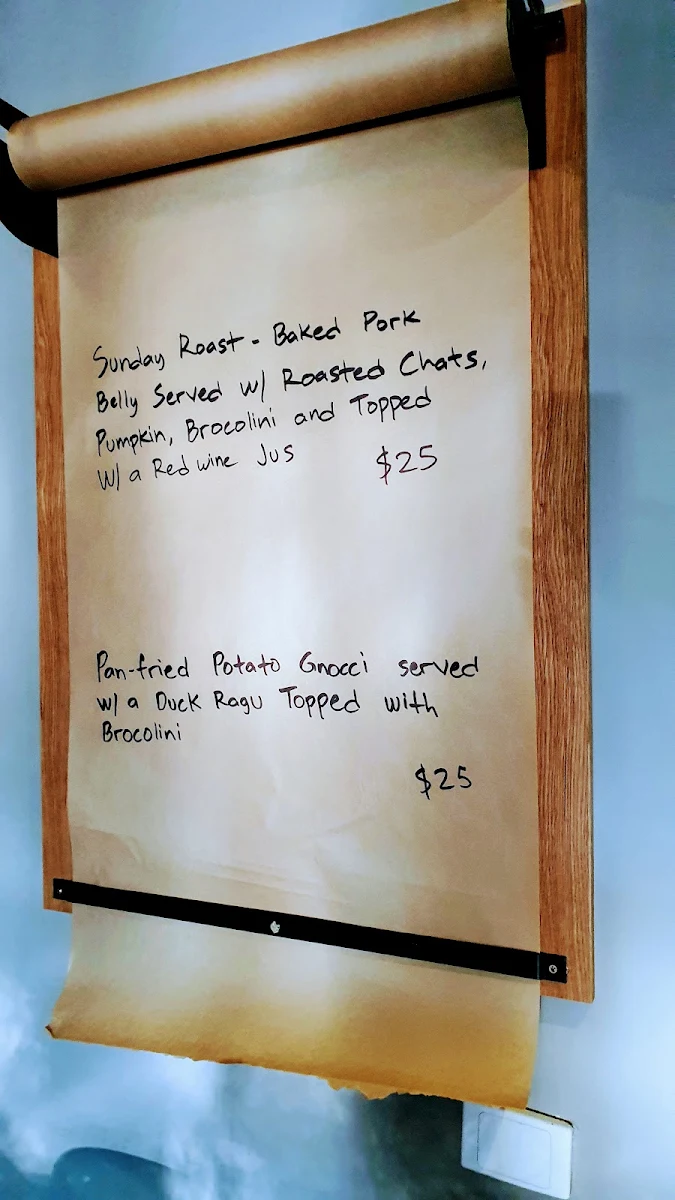 Sunday Roast - Baked Pork
Belly Served w/ Roasted Chats,
Pumpkin, Brocolini and Topped
W/ a Red wine Jus $25
Pan-fried Potato Gnocci served
w/ a Duck Ragu Topped with
Brocolini
$25